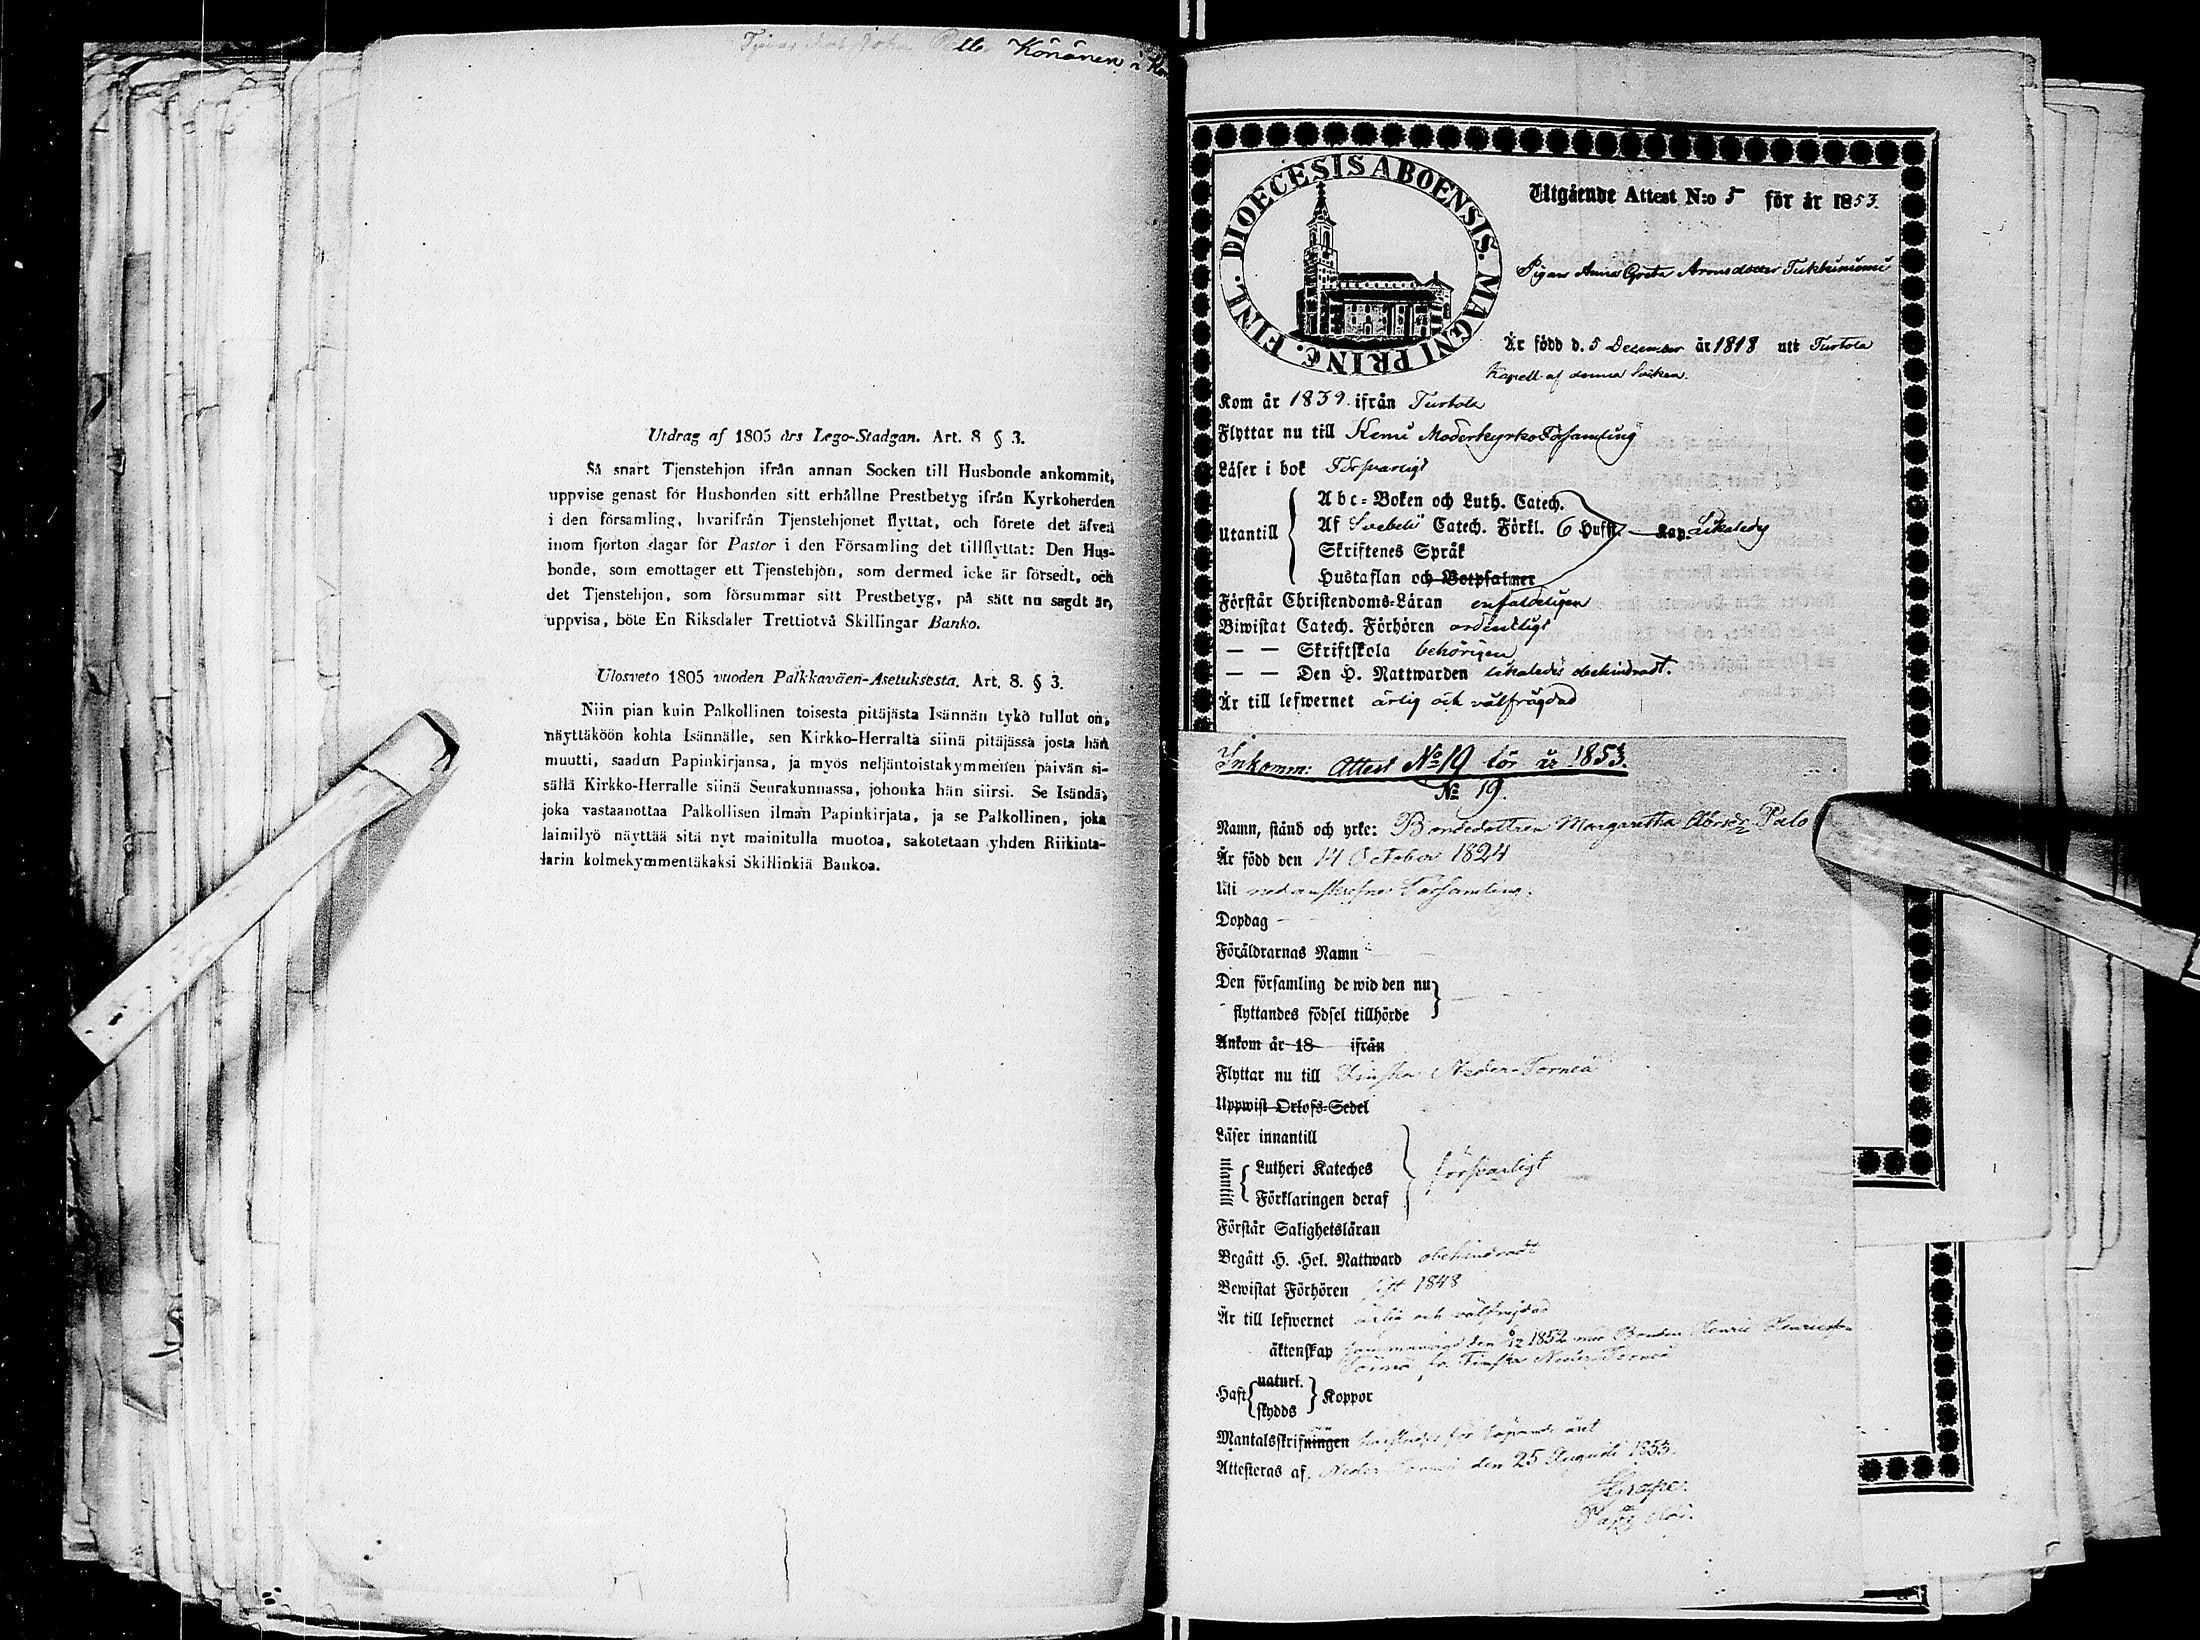 Pelle Könönen i
Utdrag af 1805 års Lego-Stadgan. Art. 8 § 3.
Så snart Tjenstehjon ifrån annan Socken till Husbonde ankommit,
uppvise genast för Husbonden sitt erhållne Prestbetyg ifrån Kyrkoherden
i den församling, hvarifrån Tjenstehjonet flyttat, och förete det äfven
inom fjorton dagar för Pastor i den Församling det tillflyttat: Den Hus-
bonde, som emottager ett Tjenstehjon, som dermed icke är försedt, och
det Tjenstehjon, som försummar sitt Prestbetyg, på sätt nu sagdt är,
uppvisa, böte En Riksdaler Trettiotvå Skillingar Banko.
Ulosveto 1805 vuoden Palkkaväen-Asetuksesta. Art. 8. § 3.
Niin pian kuin Palkollinen toisesta pitäjästä Isännän tykö tullut on,
näyttäköön kohta Isännälle, sen Kirkko-Herralta siinä pitäjässä josta hän
muutti, saadun Papinkirjansa, ja myös neljäntoistakymmenen päivän si-
sällä Kirkko-Herralle siinä Seurakunnassa, johonka hän siirsi. Se Isändä,
joka vastaanottaa Palkollisen ilman Papinkirjata, ja se Palkollinen, joka
laimilyö näyttää sitä nyt mainitulla muotoa, sakotetaan yhden Riikinta-
larin kolmekymmentäkaksi Skillinkiä Bankoa.
DIOECESIS ABOENSIS. MAGNI PRINC. FINL.
Utgående Attest N:o 5 för år 1853.
Pigan Anna Greta Aronsdotter Tukkiniemi
Är född d. 5 December år 1818 uti Turtola
Kapell af denna Socken.
Kom år 1839. ifrån Turtola
Flyttar nu till Kemi Moderkyrko Församling
Läser i bok Försvarligt
Abc-Boken och Luth. Catech.
Utantill Af Svebelii Catech. Förkl. 6 Hufst. Kap. Likaledes
Skriftenes Språk
Hustaflan och Botpsalmer
Förstår Christendoms-Läran enfaldeligen
Biwistat Catech. Förhören ordentligt
— — Skriftskola behörigen
— — Den H. Nattwarden likaledes obehindradt.
Är till lefwernet ärlig och välfrägdad
Inkomm: Attest No 19 för år 1853.
No 19.
Namn, stånd och yrke: Bondedottren Margaretha Abrsdr Palo
Är född den 14 October 1824
Uti nedanskrefne Församling.
Dopdag -
Föräldrarnas Namn
Den församling de wid den nu
flyttandes födsel tillhörde
Ankom år 18 ifrån
Flyttar nu till Finska Neder-Torneå
Uppwist Orlofs-Sedel
Läser innantill
utantill Lutheri Kateches försvarligt
Förklaringen deraf
Förstår Salighetsläran
Begått H. Hel. Nattward obehindradt
Bewistat Förhören sist 1848
Är till lefwernet ärlig och välfrejdad
äktenskap 1852 med Bonden Henric Henricsson
Finska Neder-Torneå
Haft naturl. skydds Koppor
Mantalsskrifningen för löpande året
Attesteras af, Neder-Torneå den 25 Augusti 1853.
Grape.